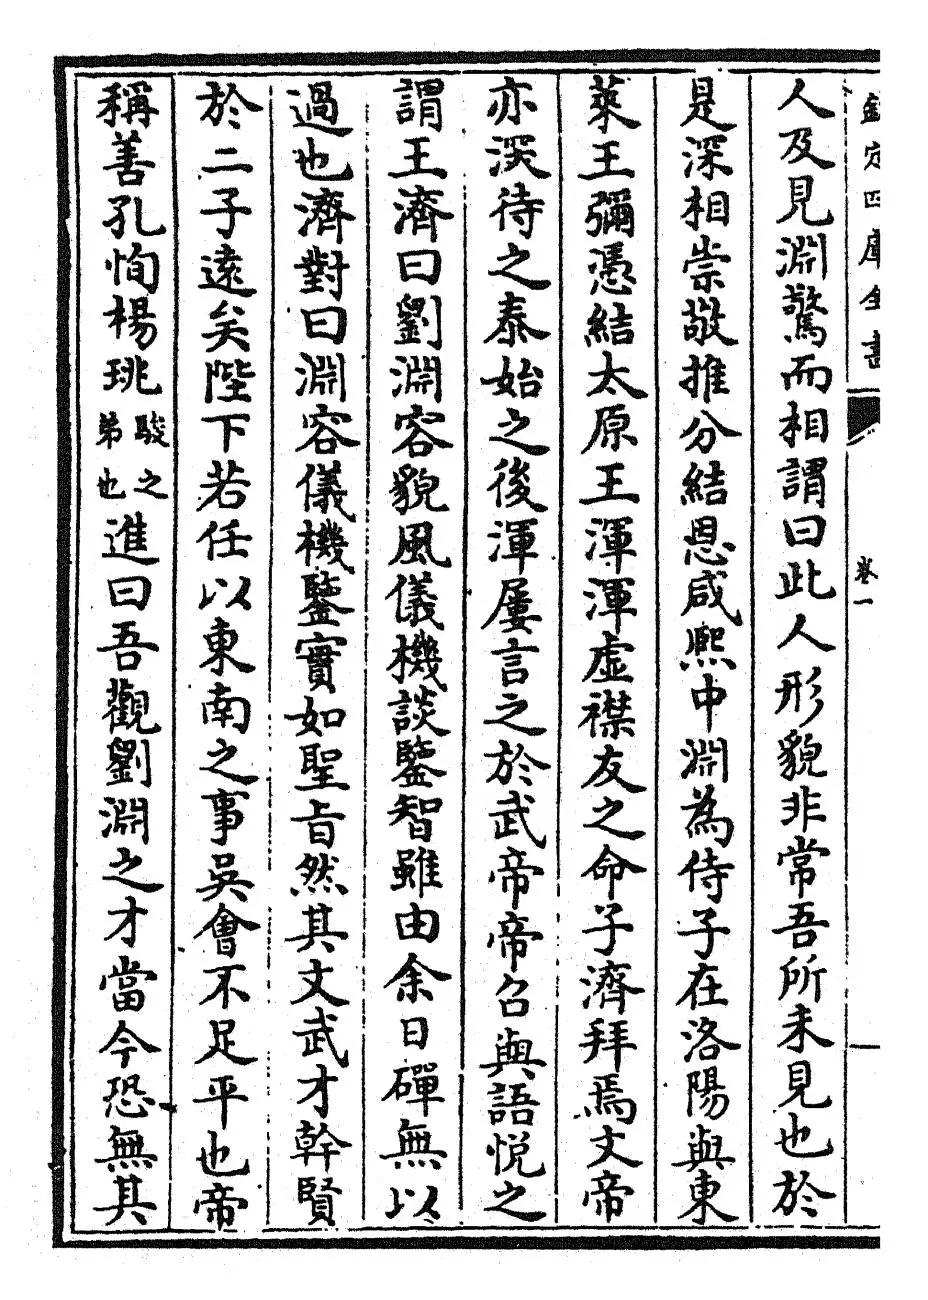 欽定四庫全書
卷一
人及見淵驚而相謂曰此人形貌非常吾所未見也於
是深相崇敬推分結恩咸熙中淵為侍子在洛陽與東
萊王彌憑結太原王渾渾虛襟友之命子濟拜焉文帝
亦深待之泰始之後渾屢言之於武帝帝召與語悅之
謂王濟曰劉淵容貌風儀機談鑒智雖由余日磾無以
過也濟對曰淵容儀機鑒實如聖旨然其文武才幹賢
於二子遠矣陛下若任以東南之事吳會不足平也帝
稱善孔恂楊珧駿之弟也進曰吾觀劉淵之才當今恐無其